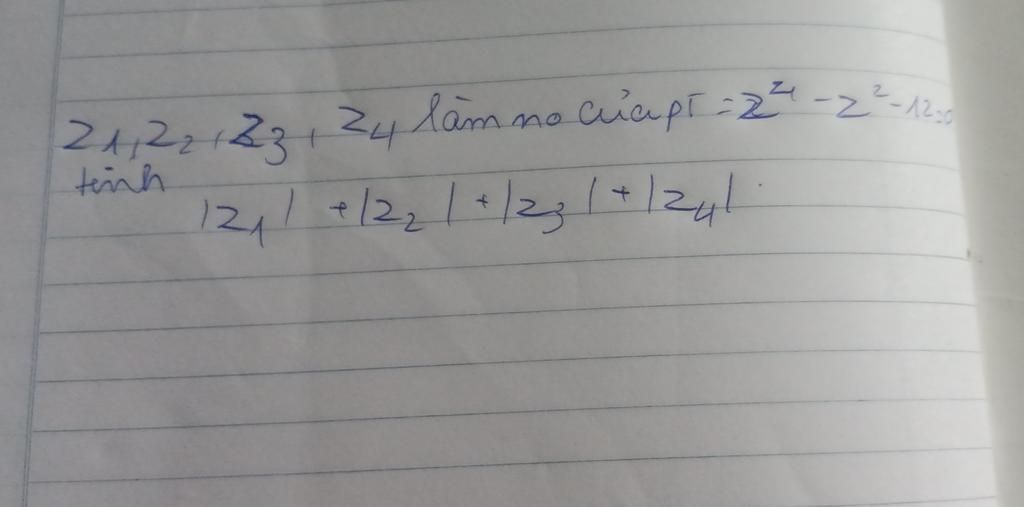 z₁, z₂, z₃, z₄ làm no của pT = z⁴ - z² - 12 = 0
tính
|z₁| + |z₂| + |z₃| + |z₄|.